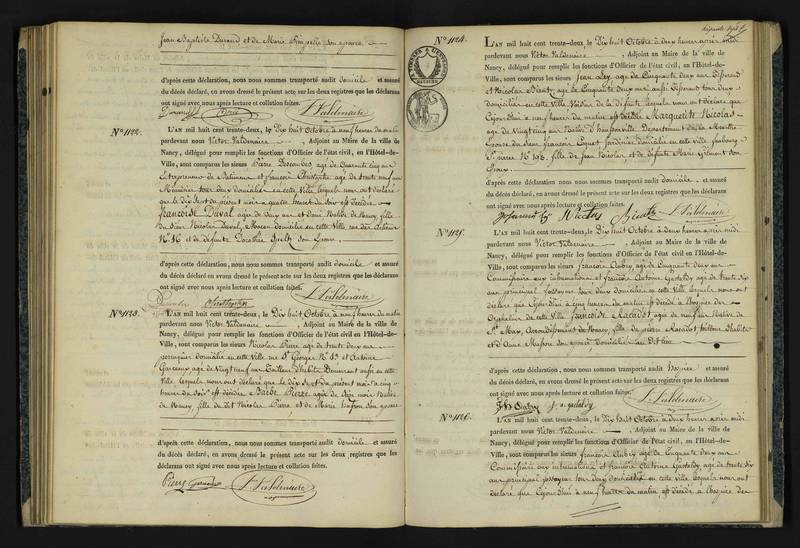 Jean Baptiste Durand et de Marie son épouse
d'après cette déclaration, nous nous sommes transporté audit domicile et assuré
du décès déclaré, en avons dressé le présent acte sur les deux registres que les déclarans
ont signé avec nous après lecture et collation faites.
Valdenaire
N° 1122.
L'AN mil huit cent trente-deux, le Dix huit Octobre à neuf heures du matin
pardevant nous Victor Valdenaire, Adjoint au Maire de la ville de
Nancy, délégué pour remplir les fonctions d'Officier de l'état civil, en l'Hôtel-de-
Ville, sont comparus les sieurs Pierre age de Quarante cinq ans
Entrepreneur de Batiments et françois Christophe agé de trente neuf ans
Menuisier tous deux domiciliés en cette Ville lesquels nous ont déclaré
que le Dix Sept du présent mois a quatre heures du soir est décédée
françoise Duval agée de deux ans et demi Native de Nancy fille
du Sieur Nicolas Duval, domicilié en cette Ville rue des
N° 16 et de défunte Dorothée son Epouse
d'après cette déclaration, nous nous sommes transporté audit domicile et assuré
du décès déclaré en avons dressé le présent acte sur les deux registres que les déclarans
ont signé avec nous après lecture et collation faites.
Christophe Valdenaire
N° 1123.
L'AN mil huit cent trente-deux, le Dix huit Octobre à neuf heures du matin
pardevant nous Victor Valdenaire, Adjoint au Maire de la ville de
Nancy, délégué pour remplir les fonctions d'Officier de l'état civil en l'Hôtel-de-
Ville, sont comparus les sieurs Nicolas Pierre agé de trente deux ans
perruquier domicilié en cette Ville rue St Georges N° et Antoine
agé de Vingt neuf ans Tailleur d'habits Demeurant aussi en cette
Ville lesquels nous ont déclaré que le dix Sept du présent mois a cinq
heures du soir est décédée Pierre agée de Six mois Native
de Nancy, fille du dit Nicolas Pierre et de Marie son épouse
d'après cette déclaration, nous nous sommes transporté audit domicile et assuré
du décès déclaré, en avons dressé le présent acte sur les deux registres que les
déclarans ont signé avec nous après lecture et collation faites.
Pierre Valdenaire
N° 1124.
L'AN mil huit cent trente-deux, le Dix huit Octobre à deux heures après midi
pardevant nous Victor Valdenaire, Adjoint au Maire de la ville de
Nancy, délégué pour remplir les fonctions d'Officier de l'état civil, en l'Hôtel-de-
Ville, sont comparus les sieurs Jean age de Cinquante deux ans
et Nicolas agé de Cinquante deux ans aussi tous deux
domiciliés en cette Ville Voisins de la Défunte lesquels nous ont déclaré que
Cejourd'hui à neuf heures du matin est décédée Marguerite Nicolas
agée de Vingt Native de Département de la Meurthe
Epouse du Sieur françois Jardinier domicilié en cette Ville faubourg
St pierre N° 196 fille de Jean Nicolas et de défunte Marie son
Epouse
d'après cette déclaration nous nous sommes transporté audit domicile et assuré
du décès déclaré, en avons dressé le présent acte sur les deux registres que les déclarans
ont signé avec nous après lecture et collation faites.
Valdenaire
N° 1125.
L'AN mil huit cent trente-deux, le Dix huit Octobre à deux heures après midi
pardevant nous Victor Valdenaire, Adjoint au Maire de la ville de
Nancy, délégué pour remplir les fonctions d'Officier de l'état civil, en l'Hôtel-de-
Ville, sont comparus les sieurs françois Aubry, agé de Cinquante deux ans
Commissaire aux inhumations et françois Antoine Gastaldy agé de trente six
ans principal fossoyeur tous deux domiciliés en cette Ville lesquels nous ont
déclaré que Cejourd'hui à cinq heures du matin est décédée à l'hospice des
Orphelins de cette Ville françoise Racadot agée de neuf ans Native de
St Max, Arrondissement de Nancy, fille de pierre Racadot tailleur d'habits
et d'Anne son épouse domiciliés au dit lieu
d'après cette déclaration, nous nous sommes transporté audit hospice et assuré
du décès déclaré, en avons dressé le présent acte sur les deux registres que les déclarans
ont signé avec nous après lecture et collation faites.
Aubry gastaldy Valdenaire
N° 1126.
L'AN mil huit cent trente-deux, le Dix huit Octobre à deux heures après midi
pardevant nous Victor Valdenaire, Adjoint au Maire de la ville de
Nancy, délégué pour remplir les fonctions d'Officier de l'état civil, en l'Hôtel-de-
Ville, sont comparus les sieurs françois Aubry agé de Cinquante deux ans
Commissaire aux inhumations et françois Antoine Gastaldy, agé de trente six
ans principal fossoyeur tous deux domiciliés en cette Ville lesquels nous ont
déclaré que Cejourd'hui à neuf heures du matin, est décédé à l'hospice des